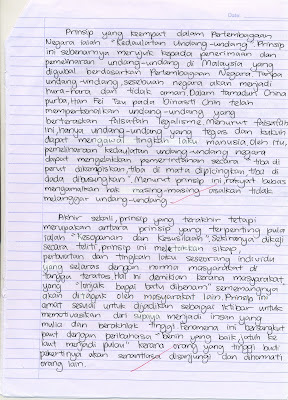 Date:
Prinsip yang keempat dalam Perlembagaan
Negara ialah "Kedaulatan Undang-undang". Prinsip
ini sebenarnya merujuk kepada penerimaan dan
pematuhan undang-undang di Malaysia yang
digubal berdasarkan Perlembagaan Negara. Tanpa
undang-undang, sesebuah negara akan menjadi
huru-hara dan tidak aman. Dalam tamadun China
purba, Han Fei Tzu pada Dinasti Chin telah
memperkenalkan undang-undang yang
berteraskan falsafah legalisme. Menurut falsafah
ini, hanya undang-undang yang tegas dan kukuh
dapat mengawal tingkah laku manusia. Oleh itu,
pemeliharaan kedaulatan undang-undang negara
dapat mengelakkan pemerintahan secara "tiba di
perut dikempiskan, tiba di mata dipicingkan, tiba di
dada dibusungkan". Menurut prinsip ini, rakyat bebas
mengamalkan hak masing-masing asalkan tidak
melanggar undang-undang.
Akhir sekali, prinsip yang terakhir tetapi
merupakan antara prinsip yang terpenting pula
ialah "Kesopanan dan Kesusilaan". Sekiranya dikaji
secara teliti, prinsip ini meletakkan sikap,
pertuturan dan tingkah laku seseorang individu
yang selaras dengan norma masyarakat di
tangga teratas. Hal ini demikian kerana masyarakat
yang "lonjak bagai batu dibenam" sememangnya
akan ditagok oleh masyarakat lain. Prinsip ini
amat sesuai untuk dijadikan sebagai iktibar untuk
memotivasikan diri supaya menjadi insan yang
mulia dan berakhlak tinggi. Fenomena ini bersangkut
paut dengan peribahasa "benih yang baik, jatuh ke
laut menjadi pulau" kerana orang yang tinggi budi
pekertinya akan senantiasa disanjung dan dihormati
orang lain.